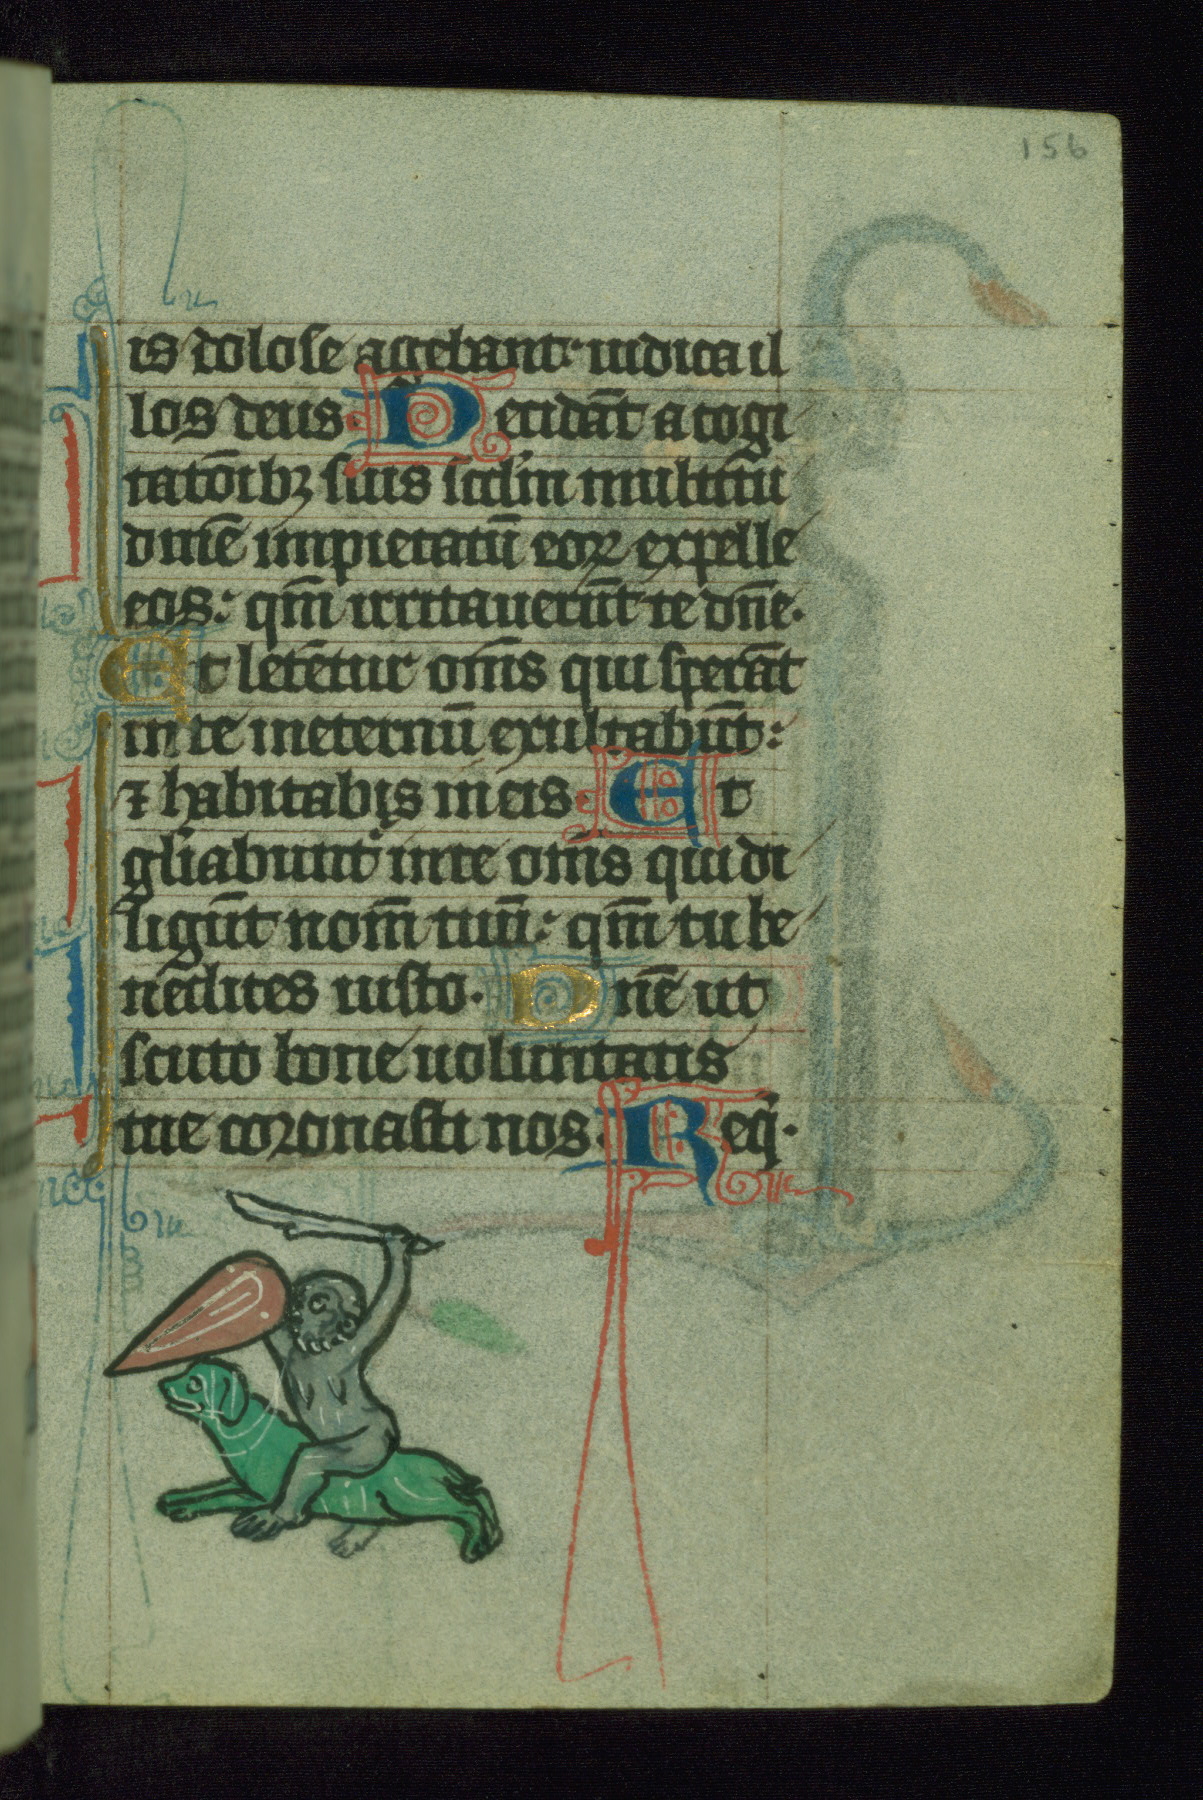 156
is dolose agebant: iudica il
los deus. Decidāt a cogi
tatōibꝫ suis scd̄m multitu
dinē impietatū eoꝝ expelle
eos: qm̄ irritauerūt te dn̄e.
Et letētur om̄s qui sperāt
in te in eternū exultabūt:
⁊ habitabis in eis. Et
gl̄iabunt in te om̄s qui di
ligūt nom̄ tuū: qm̄ tu be
nedices iusto. Dn̄e ut
scuto bone uoluntatis
tue coronasti nos. Req̄.